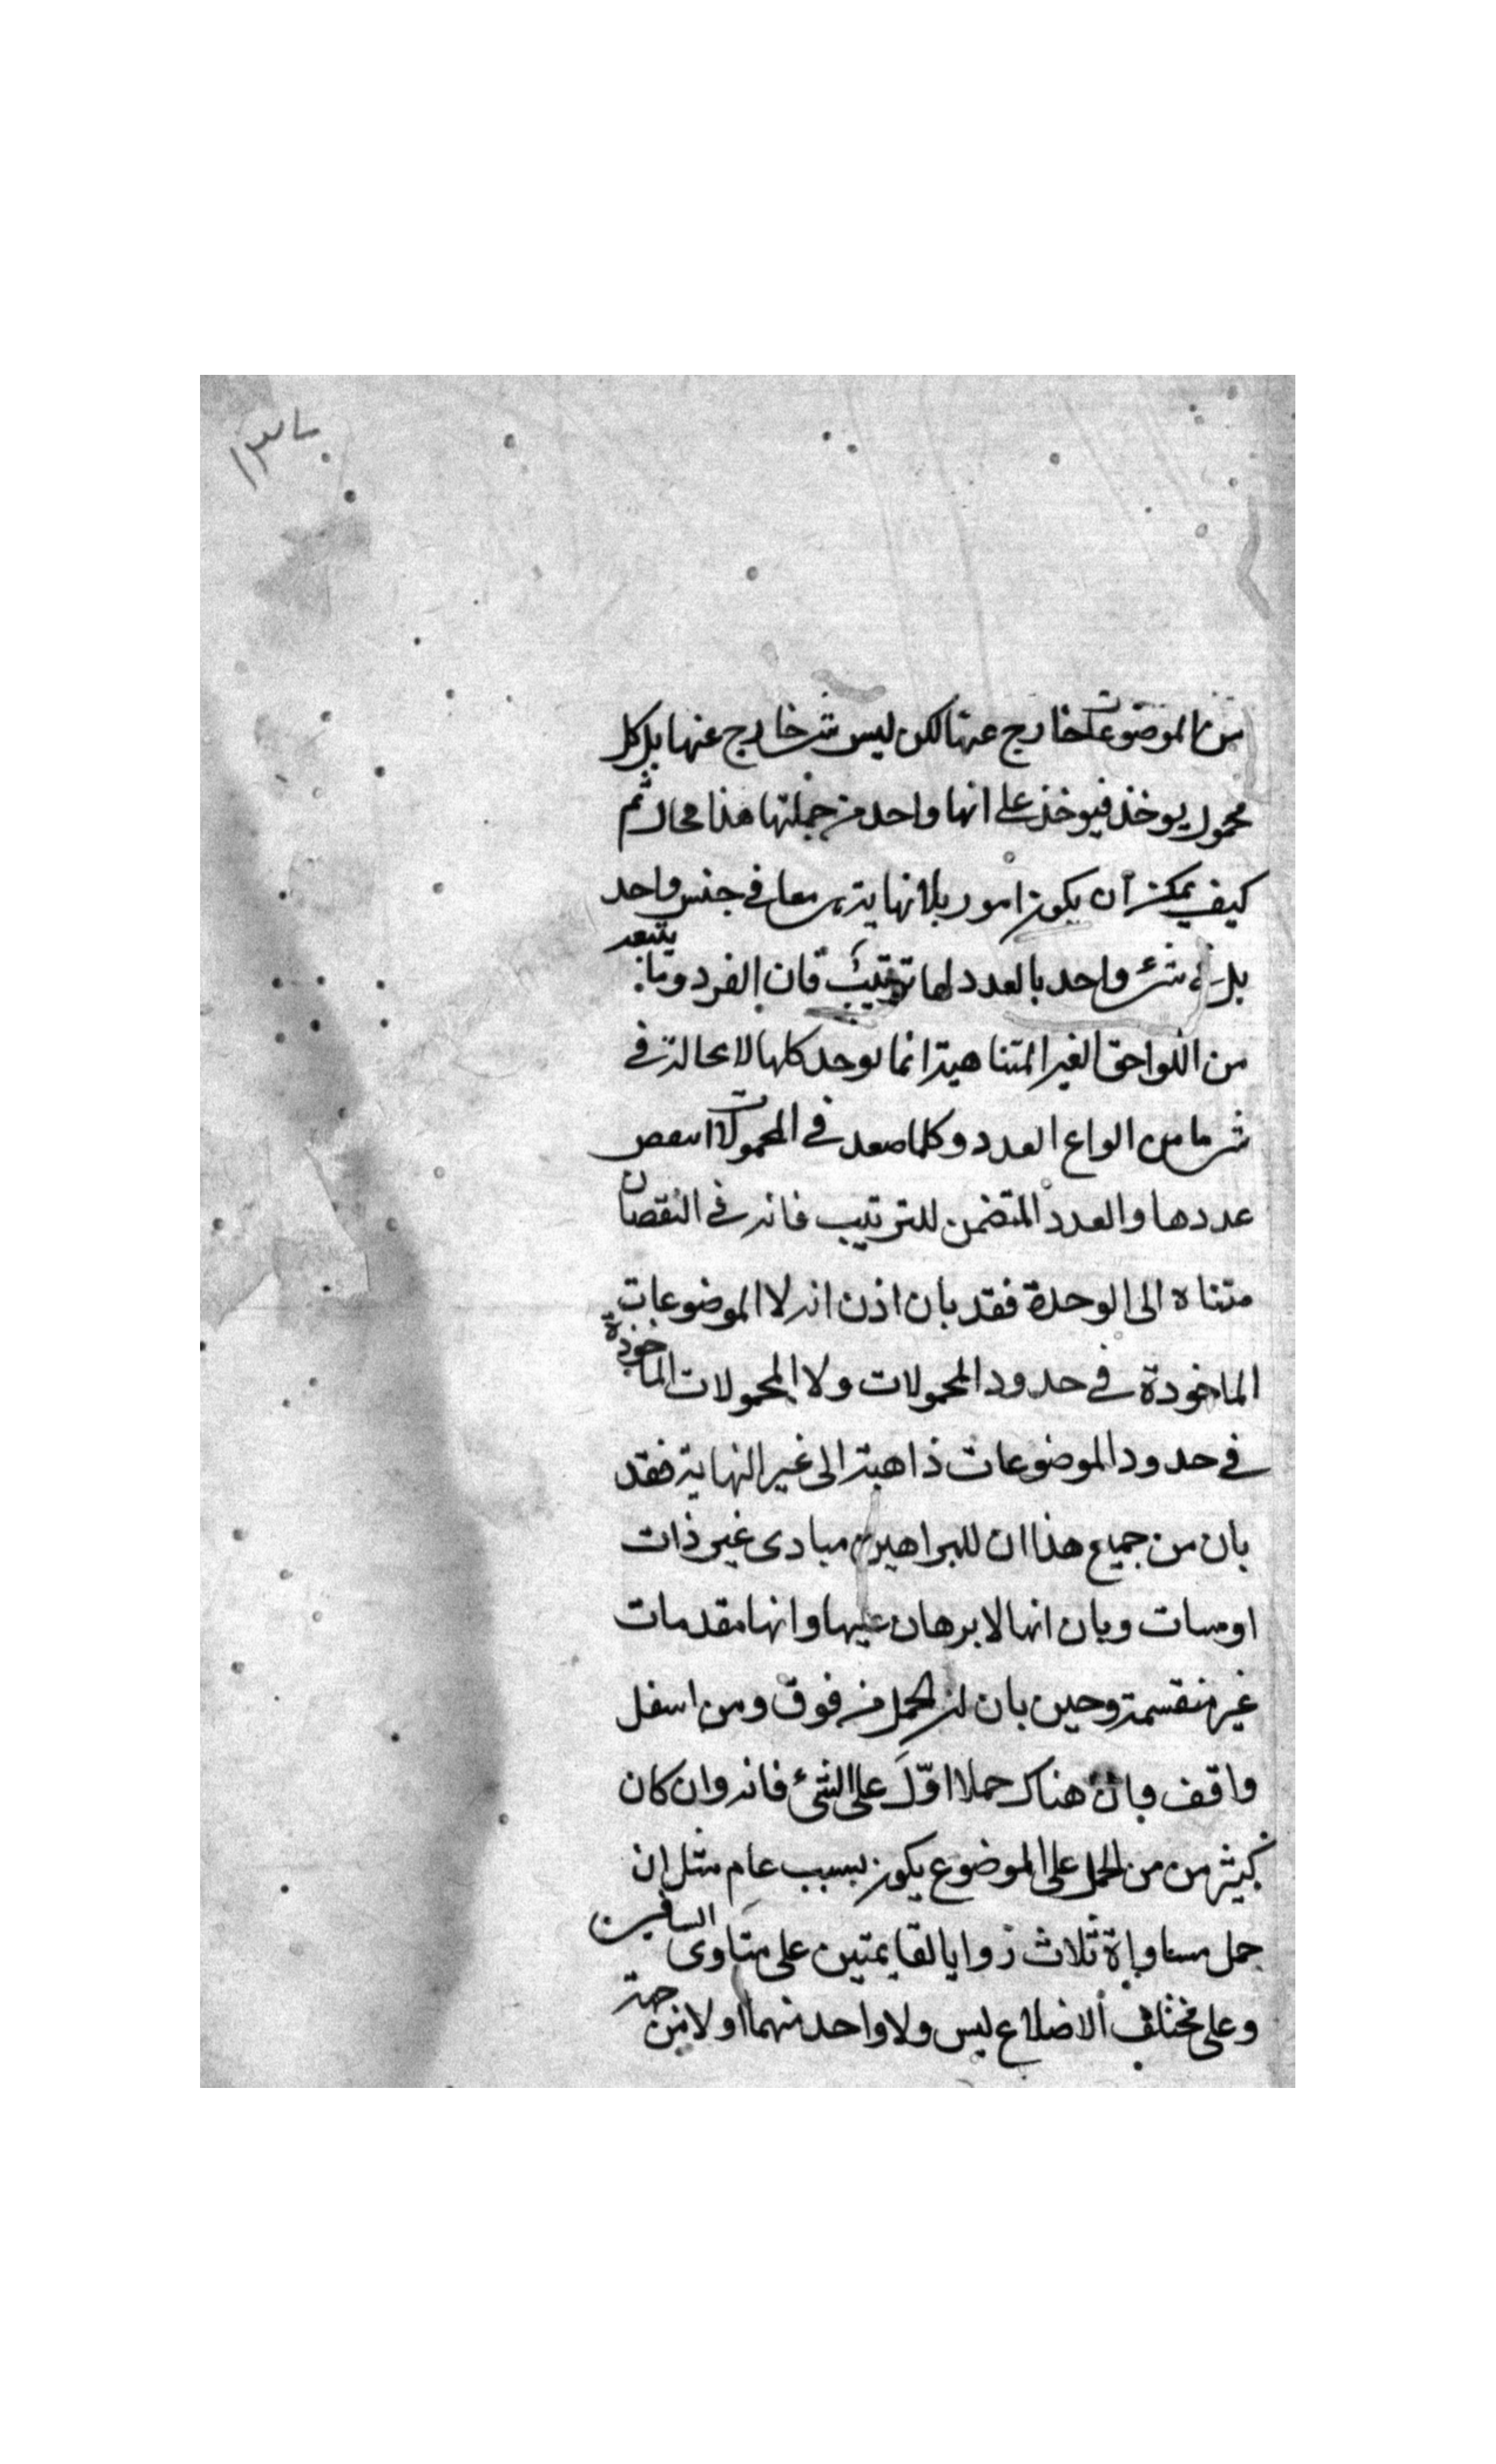 ١٣٧
من الموضوعات خارج عنها لكن ليس شئ خارج عنها بل كل
محمول يوخذ فيوخذ على انها واحد من جملتها هذا محال ثم
كيف يمكن أن يكون امور بلا نهاية معا في جنس واحد
بل في شئ واحد بالعدد لها ترتيب فان الفرد وما يتبعه
من اللواحق الغير المتناهية انما يوجد كلها لا محالة في
شئ ما من انواع العدد وكلما صعد في المحمولات انتقص
عددها والعدد المتضمن للترتيب فانه في النقصان
متناه الى الوحدة فقد بان اذن انه لا الموضوعات
الماخوذة في حدود المحمولات ولا المحمولات الماخوذة
في حدود الموضوعات ذاهبة الى غير النهاية فقد
بان من جميع هذا ان للبراهين مبادى غير ذات
اوساط وبان انها لا برهان عليها وانها مقدمات
غير منقسمة وحين بان ان الحمل من فوق ومن اسفل
واقف وبان هناك حملا اوّل على الشئ فانه وان كان
كثير من من الحمل على الموضوع يكون بسبب عام مثل ان
حمل مساواة ثلاث زوايا لقايمتين على متساوى الساقين
وعلى مختلف الاضلاع ليس ولا واحد منهما اولا من جهة